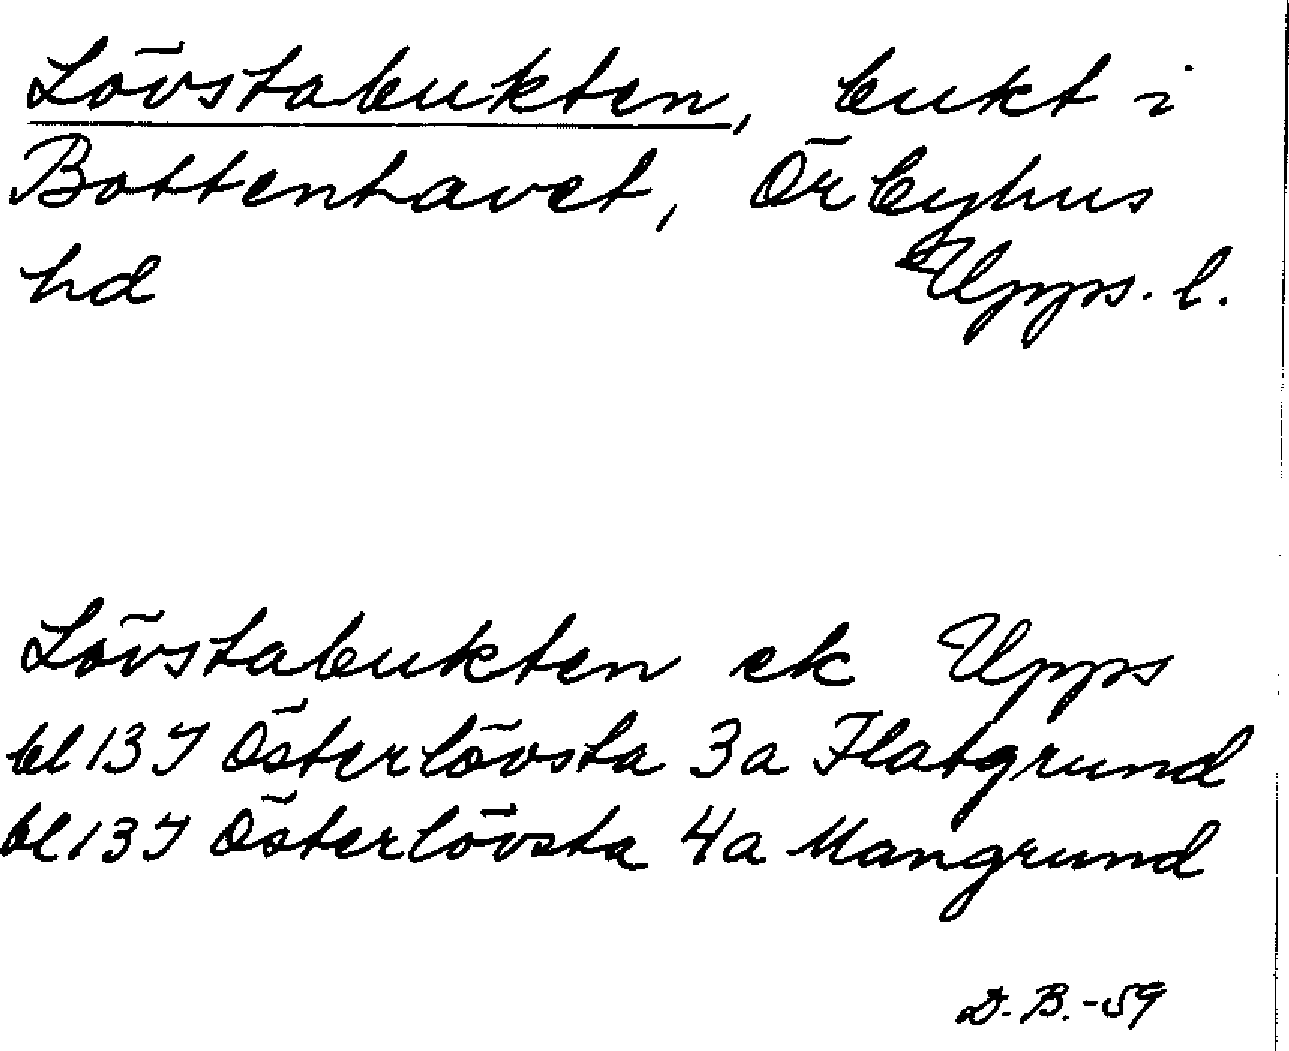 Lövstabukten, bukt i
Bottenhavet, Örbyhus
hd Upps. l.
Lövstabukten ek Upps
bl 13I Österlövsta 3a Flatgrund
bl 13I Österlövsta 4a Mangrund
D.B.-59